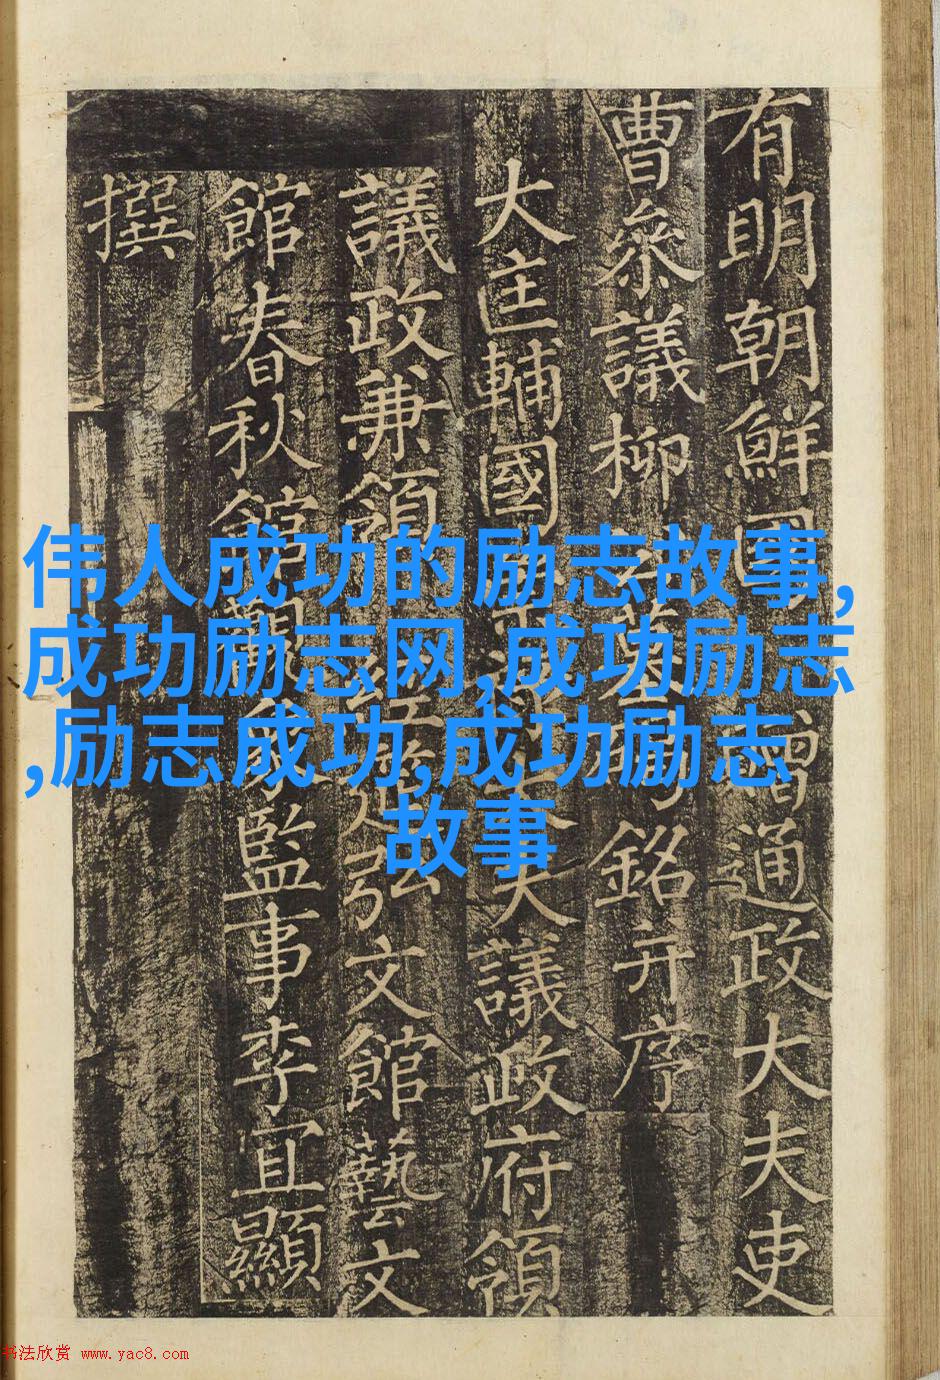 有明朝鮮國
贈通政大夫吏
曹參議柳
墓
銘并序
大匡輔國
大議政府領
議政兼領
經筵弘文館藝文
館春秋館觀象監事李宜顯
撰
伟人成功的励志故事,
成功励志网,成功励志
,励志成功,成功励志
故事
书法欣赏 www.yac8.com